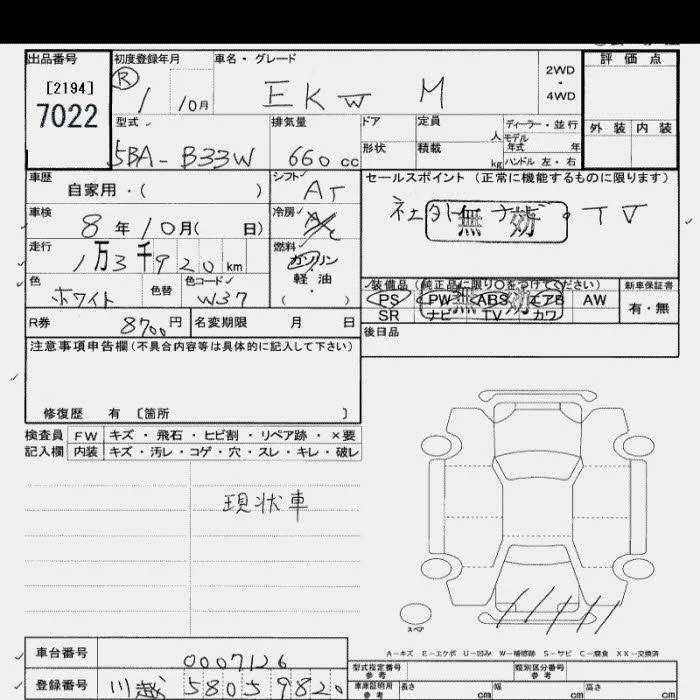 出品番号 初度登録年月 車名・グレード 評価点
[2194] R 1 10月 EKw M 2WD・4WD
7022
型式 排気量 ドア 定員 人 ディーラー・並行 外装 内装
5BA-B33W 660cc 形状 積載 kg モデル年式 年 ハンドル 左・右
車歴 シフト セールスポイント (正常に機能するものに限ります)
自家用・( ) AT
車検 冷房 社外ナビ・TV
8年10月( 日) A/C 無効
走行 燃料
1万3千920km ガソリン・軽油
色 色替 色コード ( )
ホワイト W37
装備品 (純正品に限り○をつけてください) 新車保証書
PS PW ABS エアB AW 有・無
SR ナビ TV カワ 無効
R券 8700円 名変期限 月 日 後日品
注意事項申告欄(不具合内容等は具体的に記入して下さい)
修復歴 有 〔箇所 〕
検査員 FW キズ・飛石・ヒビ割・リペア跡・×要
記入欄 内装 キズ・汚レ・コゲ・穴・スレ・キレ・破レ
現状車
スペア
A-キズ E-エクボ U-凹み W-補修跡 S-サビ C-腐食 XX-交換済
車台番号 0007126 型式指定番号 参考 類別区分番号 参考
登録番号 川越 580 5 9820 車庫証明用 参考 長さ cm 幅 cm 高さ cm